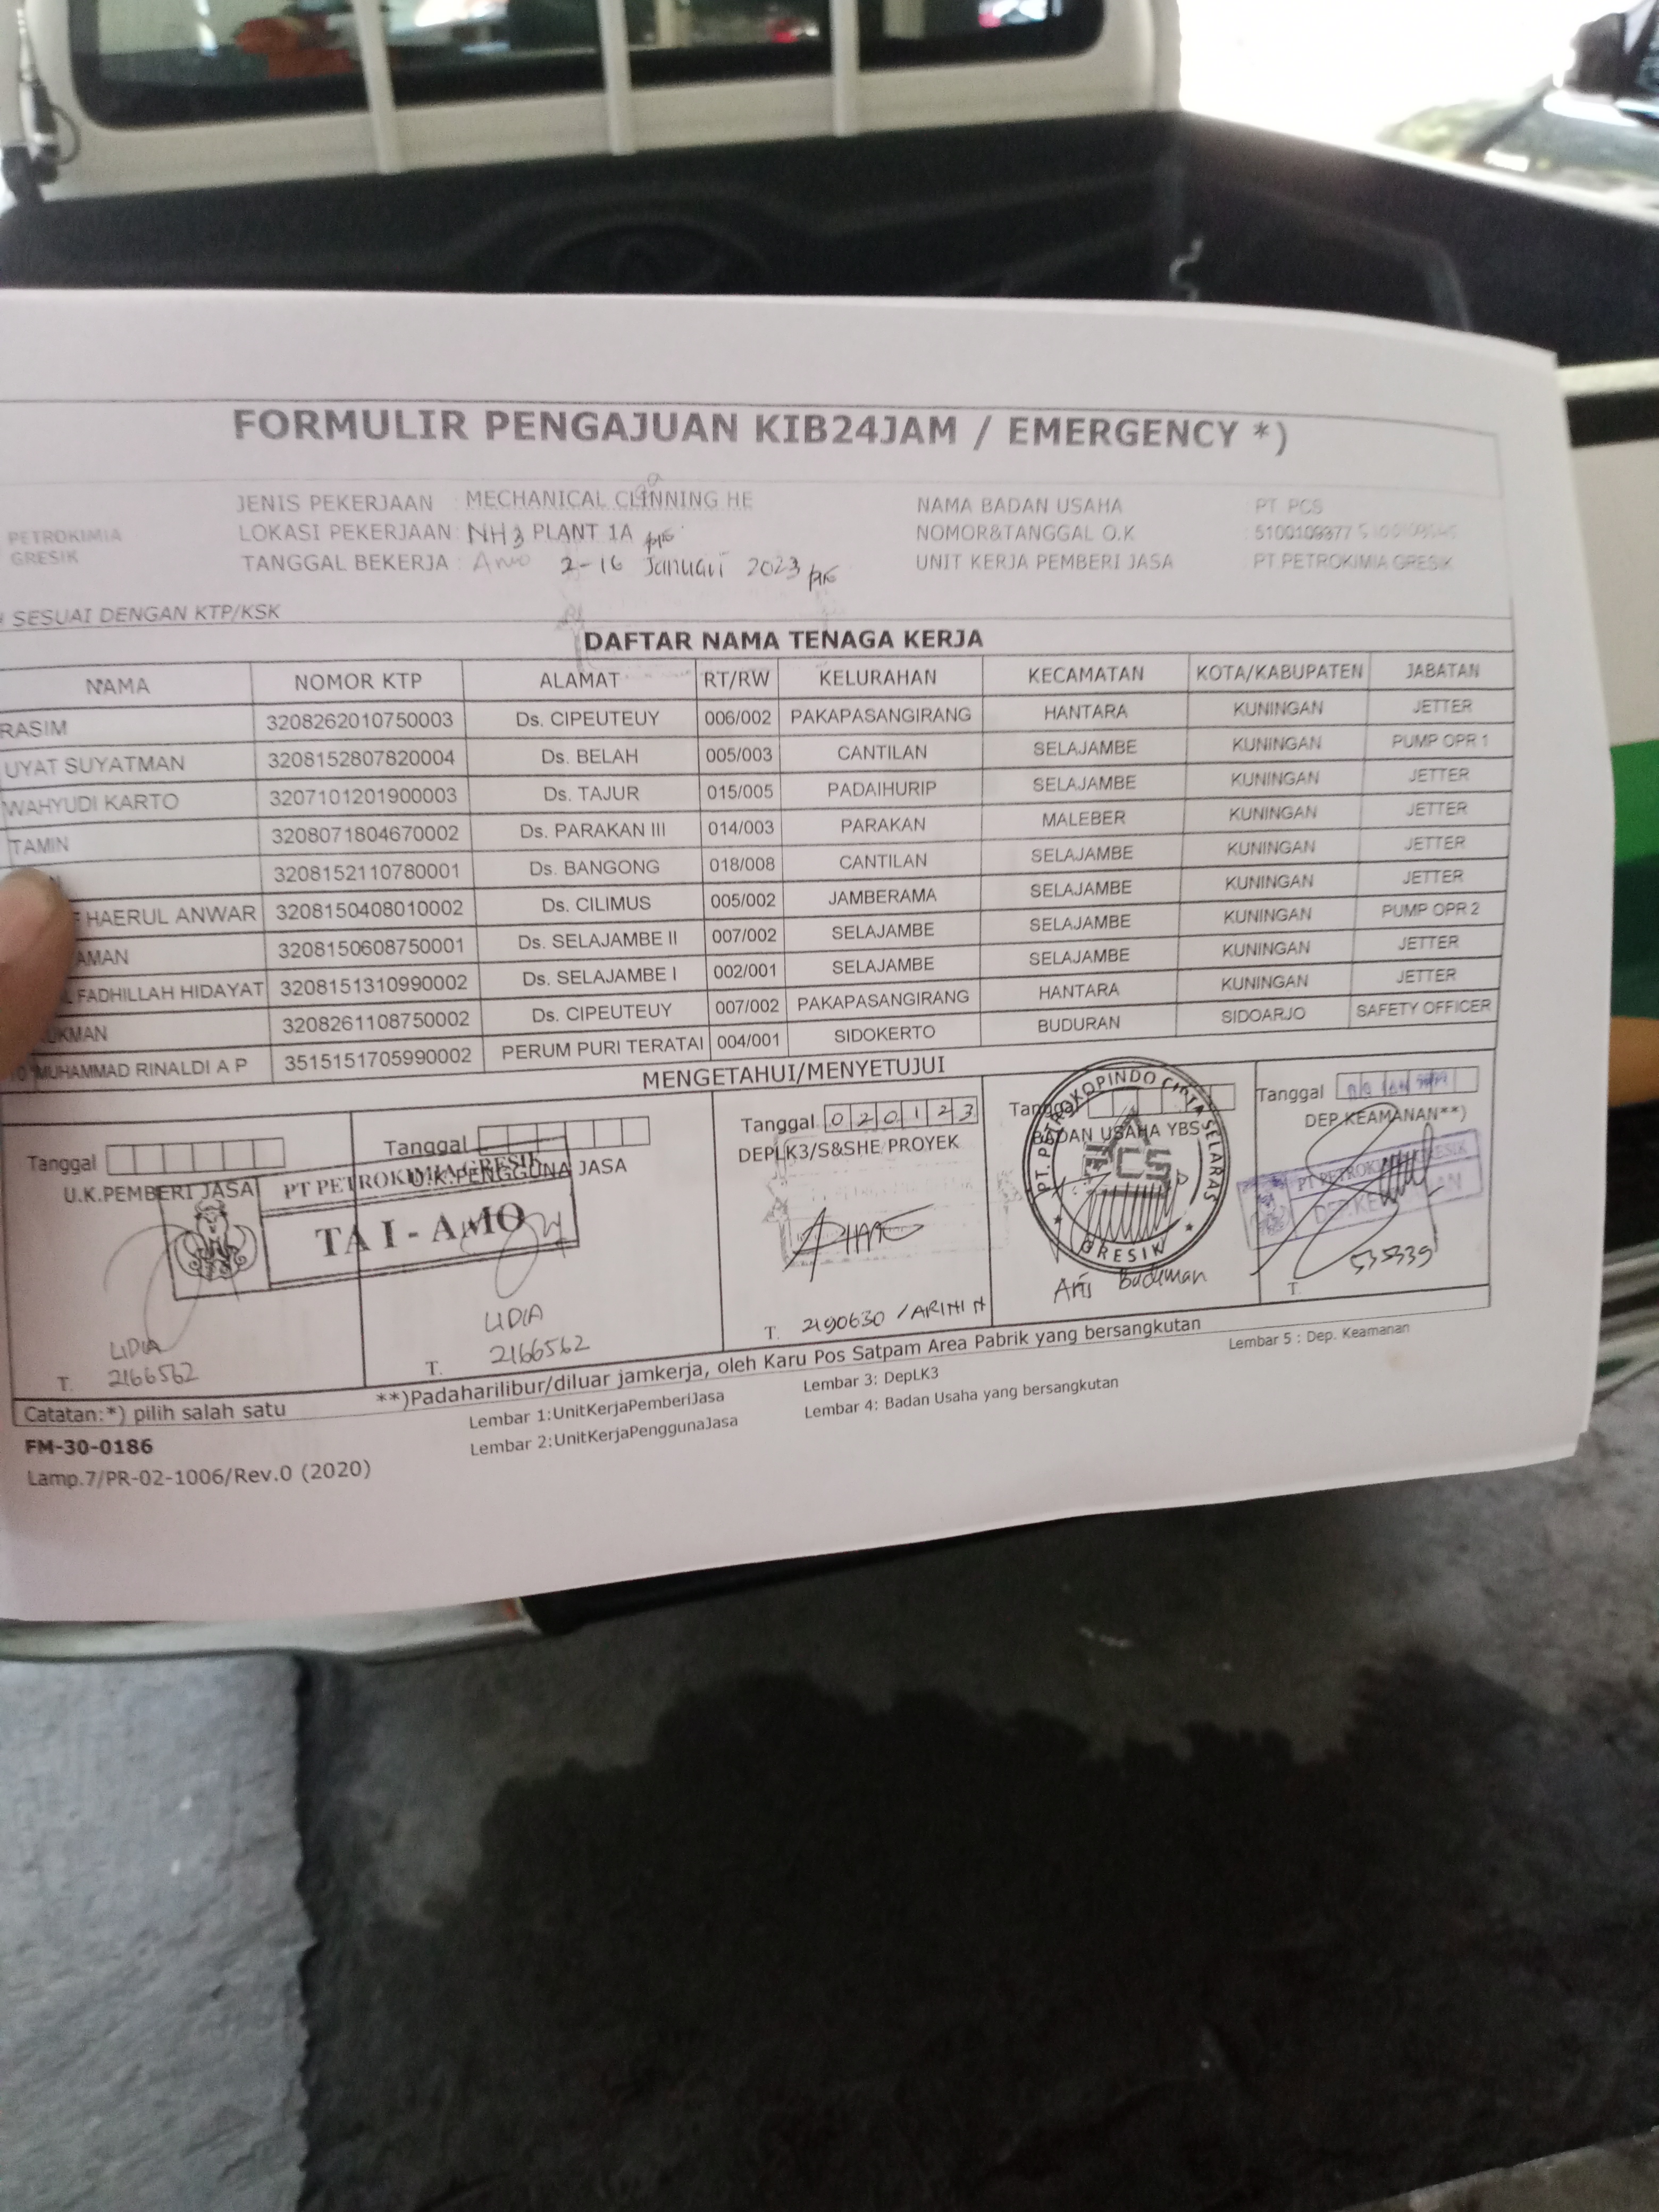 FORMULIR PENGAJUAN KIB24JAM / EMERGENCY *)
PETROKIMIA
GRESIK
JENIS PEKERJAAN : MECHANICAL CLINNING HE
LOKASI PEKERJAAN : NH3 PLANT 1A
TANGGAL BEKERJA : 2-16 Januari 2023
NAMA BADAN USAHA : PT PCS
NOMOR&TANGGAL O.K : 5100109377
UNIT KERJA PEMBERI JASA : PT PETROKIMIA GRESIK
SESUAI DENGAN KTP/KSK
DAFTAR NAMA TENAGA KERJA
NAMA NOMOR KTP ALAMAT RT/RW KELURAHAN KECAMATAN KOTA/KABUPATEN JABATAN
RASIM 3208262010750003 Ds. CIPEUTEUY 006/002 PAKAPASANGIRANG HANTARA KUNINGAN JETTER
UYAT SUYATMAN 3208152807820004 Ds. BELAH 005/003 CANTILAN SELAJAMBE KUNINGAN PUMP OPR 1
WAHYUDI KARTO 3207101201900003 Ds. TAJUR 015/005 PADAIHURIP SELAJAMBE KUNINGAN JETTER
TAMIN 3208071804670002 Ds. PARAKAN III 014/003 PARAKAN MALEBER KUNINGAN JETTER
3208152110780001 Ds. BANGONG 018/008 CANTILAN SELAJAMBE KUNINGAN JETTER
HAERUL ANWAR 3208150408010002 Ds. CILIMUS 005/002 JAMBERAMA SELAJAMBE KUNINGAN JETTER
AMAN 3208150608750001 Ds. SELAJAMBE II 007/002 SELAJAMBE SELAJAMBE KUNINGAN PUMP OPR 2
FADHILLAH HIDAYAT 3208151310990002 Ds. SELAJAMBE I 002/001 SELAJAMBE SELAJAMBE KUNINGAN JETTER
UKMAN 3208261108750002 Ds. CIPEUTEUY 007/002 PAKAPASANGIRANG HANTARA KUNINGAN JETTER
10 MUHAMMAD RINALDI A P 3515151705990002 PERUM PURI TERATAI 004/001 SIDOKERTO BUDURAN SIDOARJO SAFETY OFFICER
MENGETAHUI/MENYETUJUI
Tanggal
U.K.PEMBERI JASA
LIDIA
T. 2166562
Tanggal
U.K.PENGGUNA JASA
PT PETROKIMIA GRESIK
TA I - AMO
LIDIA
T. 2166562
Tanggal 020123
DEPLK3/S&SHE PROYEK
T. 2190630 /ARINI N
Tanggal
BADAN USAHA YBS
PT. PETROKOPINDO CIPTA SELARAS
PCS
GRESIK
Aris Budiman
Tanggal
DEP.KEAMANAN**)
PT PETROKIMIA GRESIK
DEP.KEAMANAN
T. 535339
Catatan:*) pilih salah satu
**)Padaharilibur/diluar jamkerja, oleh Karu Pos Satpam Area Pabrik yang bersangkutan
FM-30-0186
Lamp.7/PR-02-1006/Rev.0 (2020)
Lembar 1:UnitKerjaPemberiJasa
Lembar 2:UnitKerjaPenggunaJasa
Lembar 3: DepLK3
Lembar 4: Badan Usaha yang bersangkutan
Lembar 5 : Dep. Keamanan